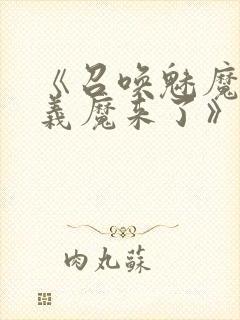 《召唤魅魔
义魔来了》
肉丸蘇